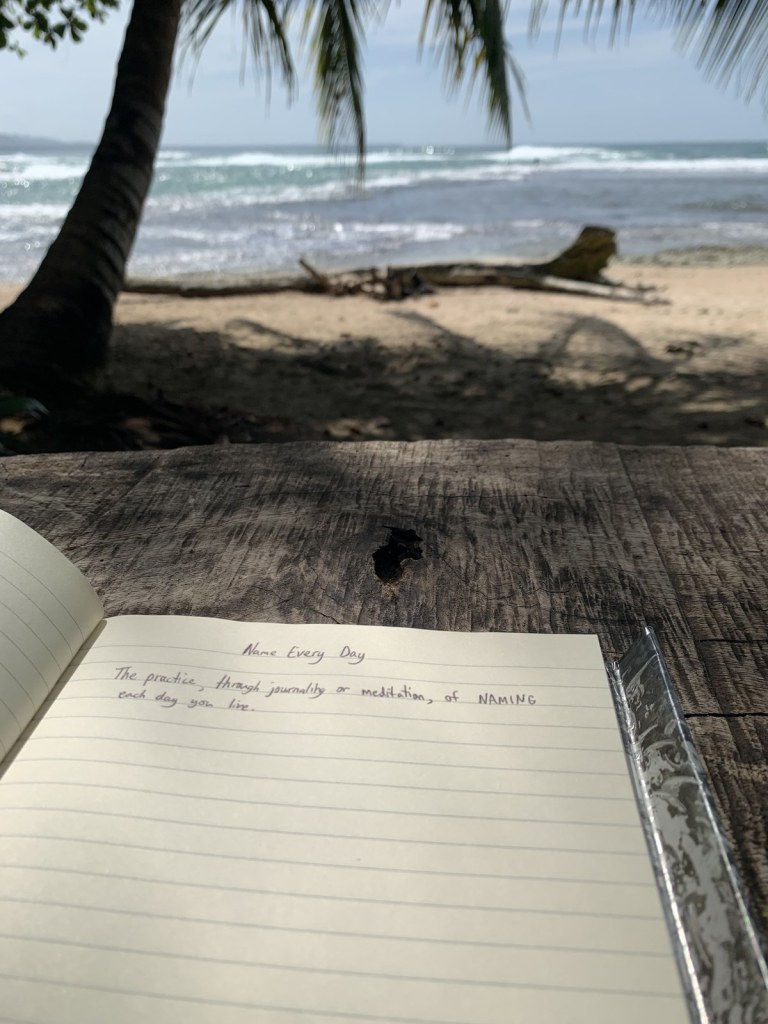 Name Every Day
The practice, through journality or meditation, of NAMING
each day you live.